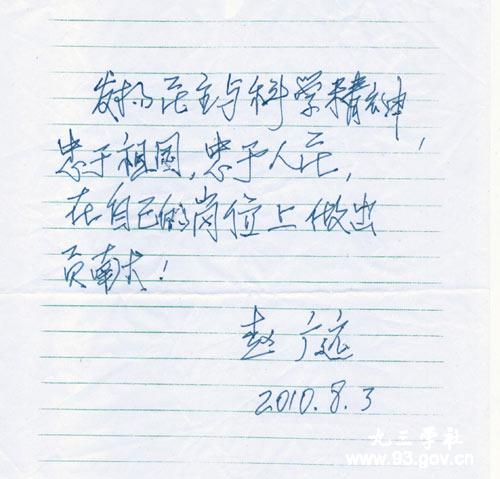 发扬民主与科学精神，
忠于祖国，忠于人民，
在自己的岗位上做出
贡献！
赵广远
2010.8.3
九三学社
www.93.gov.cn